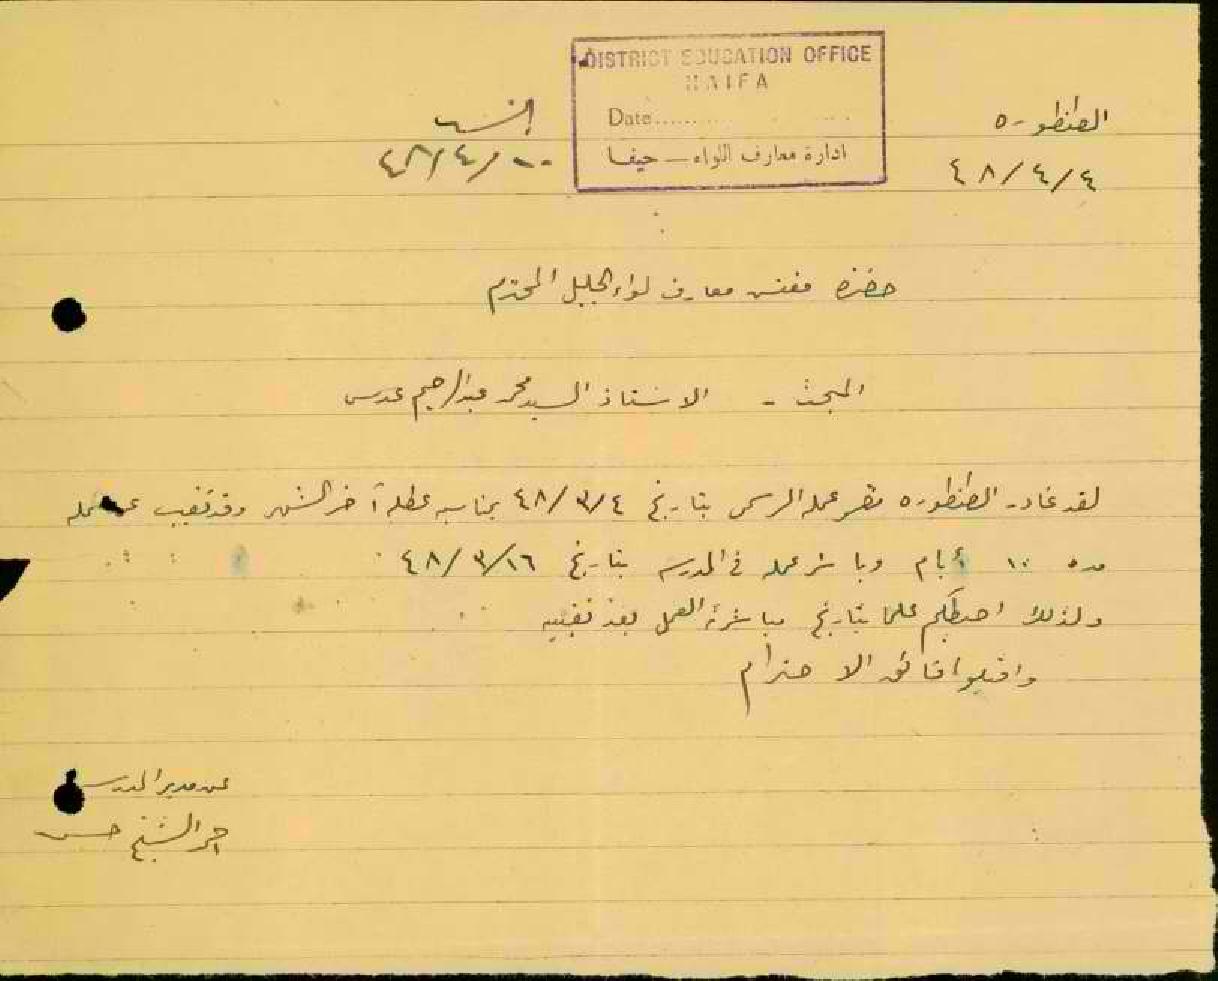 DISTRICT EDUCATION OFFICE
HAIFA
Date
ادارة معارف اللواء — حيفا
الطنطوره
٤٨/٤/٤
٤٨/٤/١٠
حضرة مفتش معارف لواء الجليل المحترم
المبحث - الاستاذ السيد محمد عبد الرحيم عدس
لقد غادر الطنطوره مقر عمله الرسمي بتاريخ ٤٨/٣/٤ بمناسبة عطلة آخر الشهر وقد تغيب عن عمله
مده ١٠ أيام وباشر عمله في المدرسه بتاريخ ٤٨/٣/١٦
ولذلك احيطكم علما بتاريخ مباشرته العمل بعد تغيبه
واقبلوا فائق الاحترام
عن مدير المدرسة
احمد الشيخ حسن